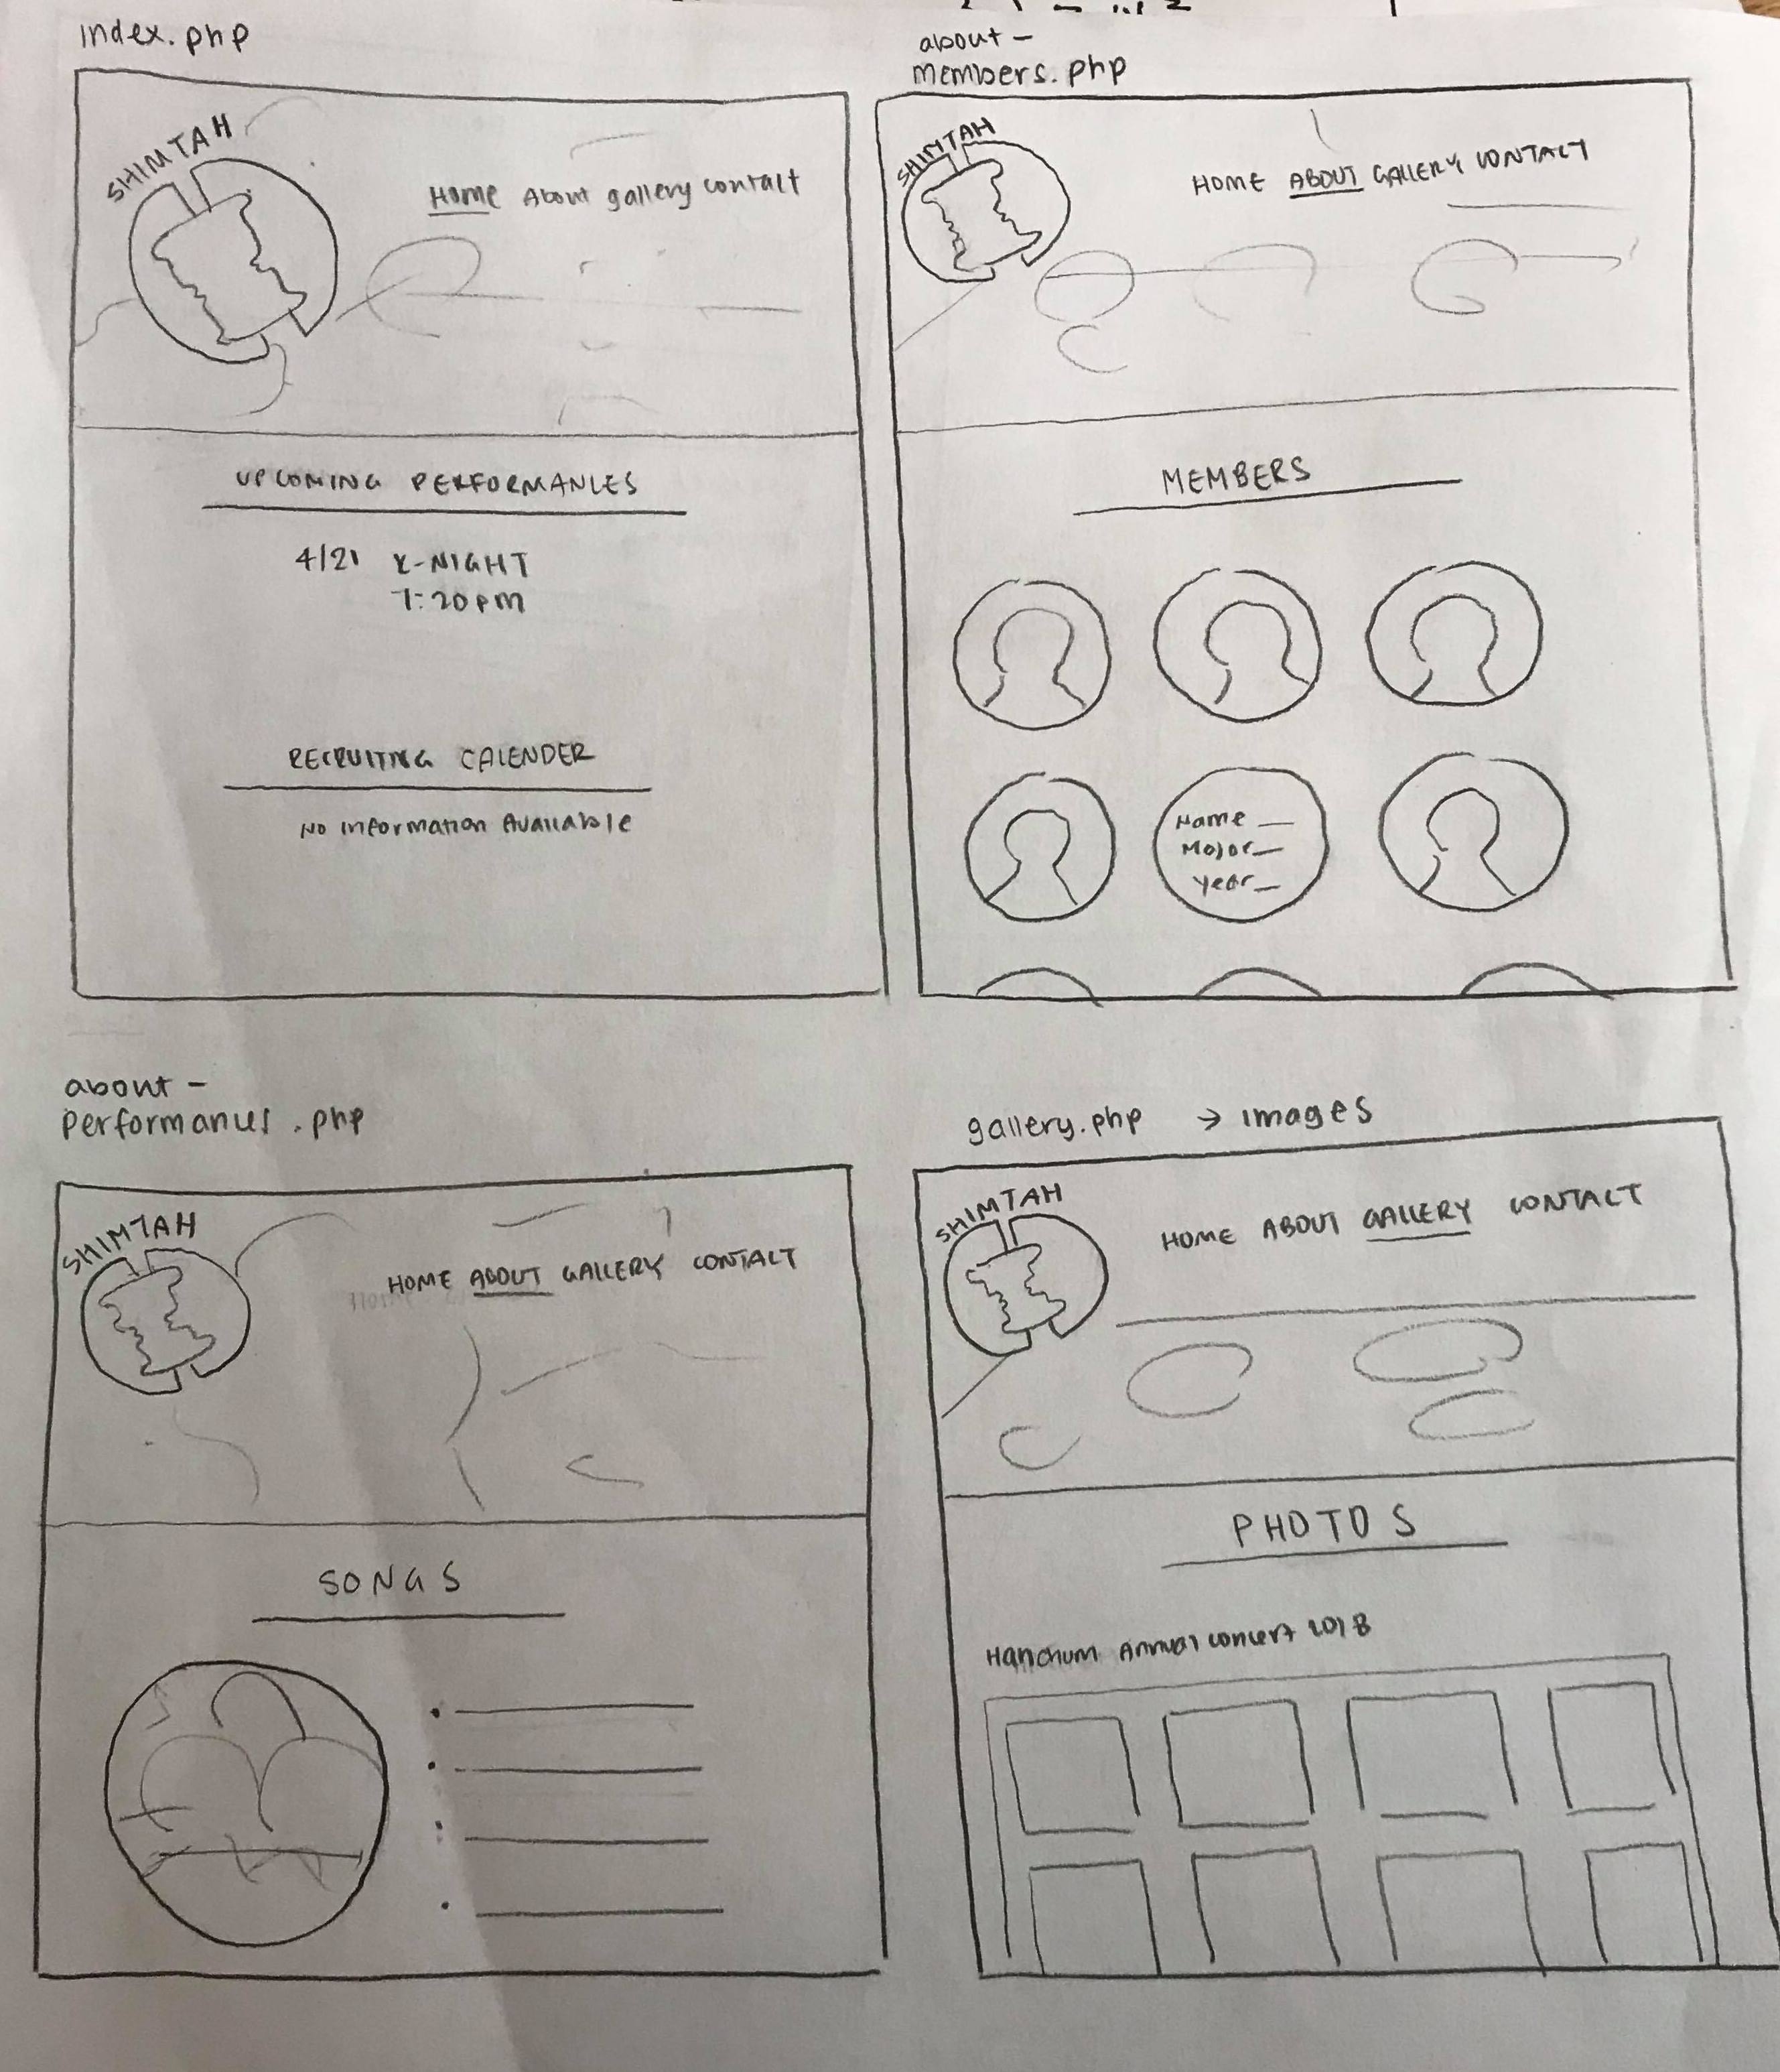 index.php
SHIMTAH
Home About gallery contact
UPCOMING PERFORMANCES
4/21 K-NIGHT
7:20pm
RECRUITING CALENDER
No Information Available
about -
members.php
SHIMTAH
HOME ABOUT GALLERY CONTACT
MEMBERS
Name
Major
Year
about -
performances.php
SHIMTAH
HOME ABOUT GALLERY CONTACT
SONGS
gallery.php → images
SHIMTAH
HOME ABOUT GALLERY CONTACT
PHOTOS
Hanchum Annual concert 2018